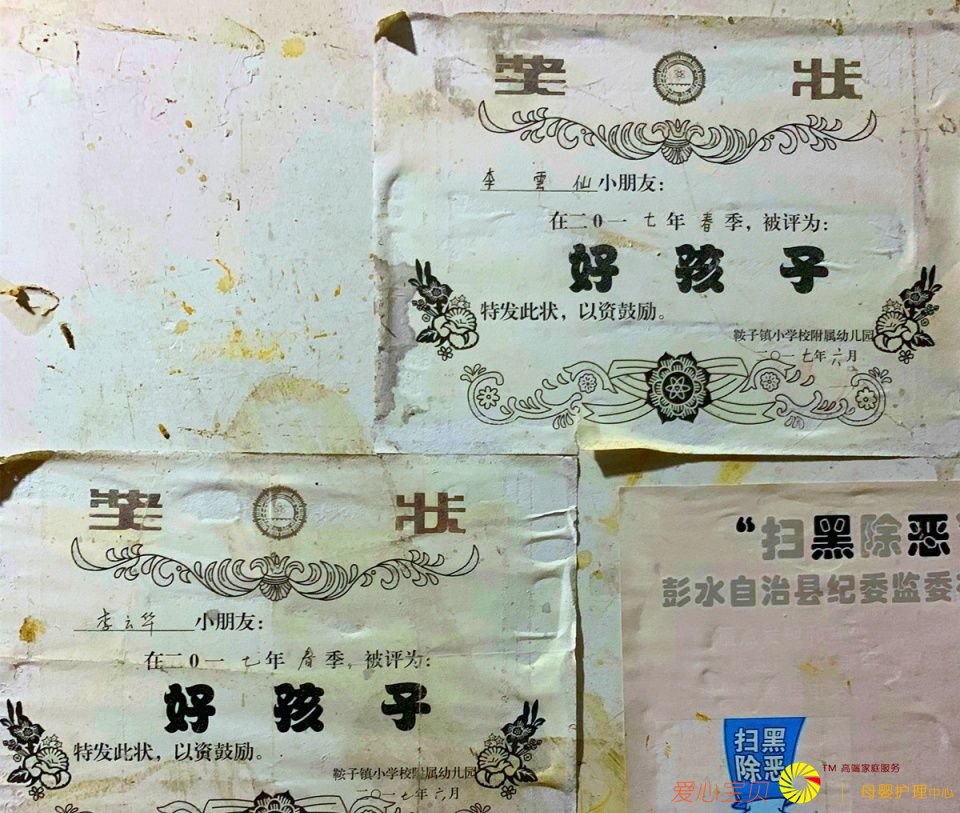 奖 状
李雲仙小朋友：
在二0一七年春季，被评为：
好孩子
特发此状，以资鼓励。
鞍子镇小学校附属幼儿园
二〇一七年六月
奖 状
李云华小朋友：
在二0一七年春季，被评为：
好孩子
特发此状，以资鼓励。
鞍子镇小学校附属幼儿园
二〇一七年六月
“扫黑除恶
彭水自治县纪委监委
扫黑
除恶
爱心宝贝
TM 高端家庭服务
母婴护理中心